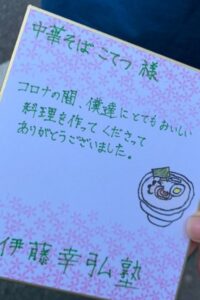 中華そば こてつ 様
コロナの間、僕達にとてもおいしい
料理を作ってくださって
ありがとうございました。
伊藤幸弘塾